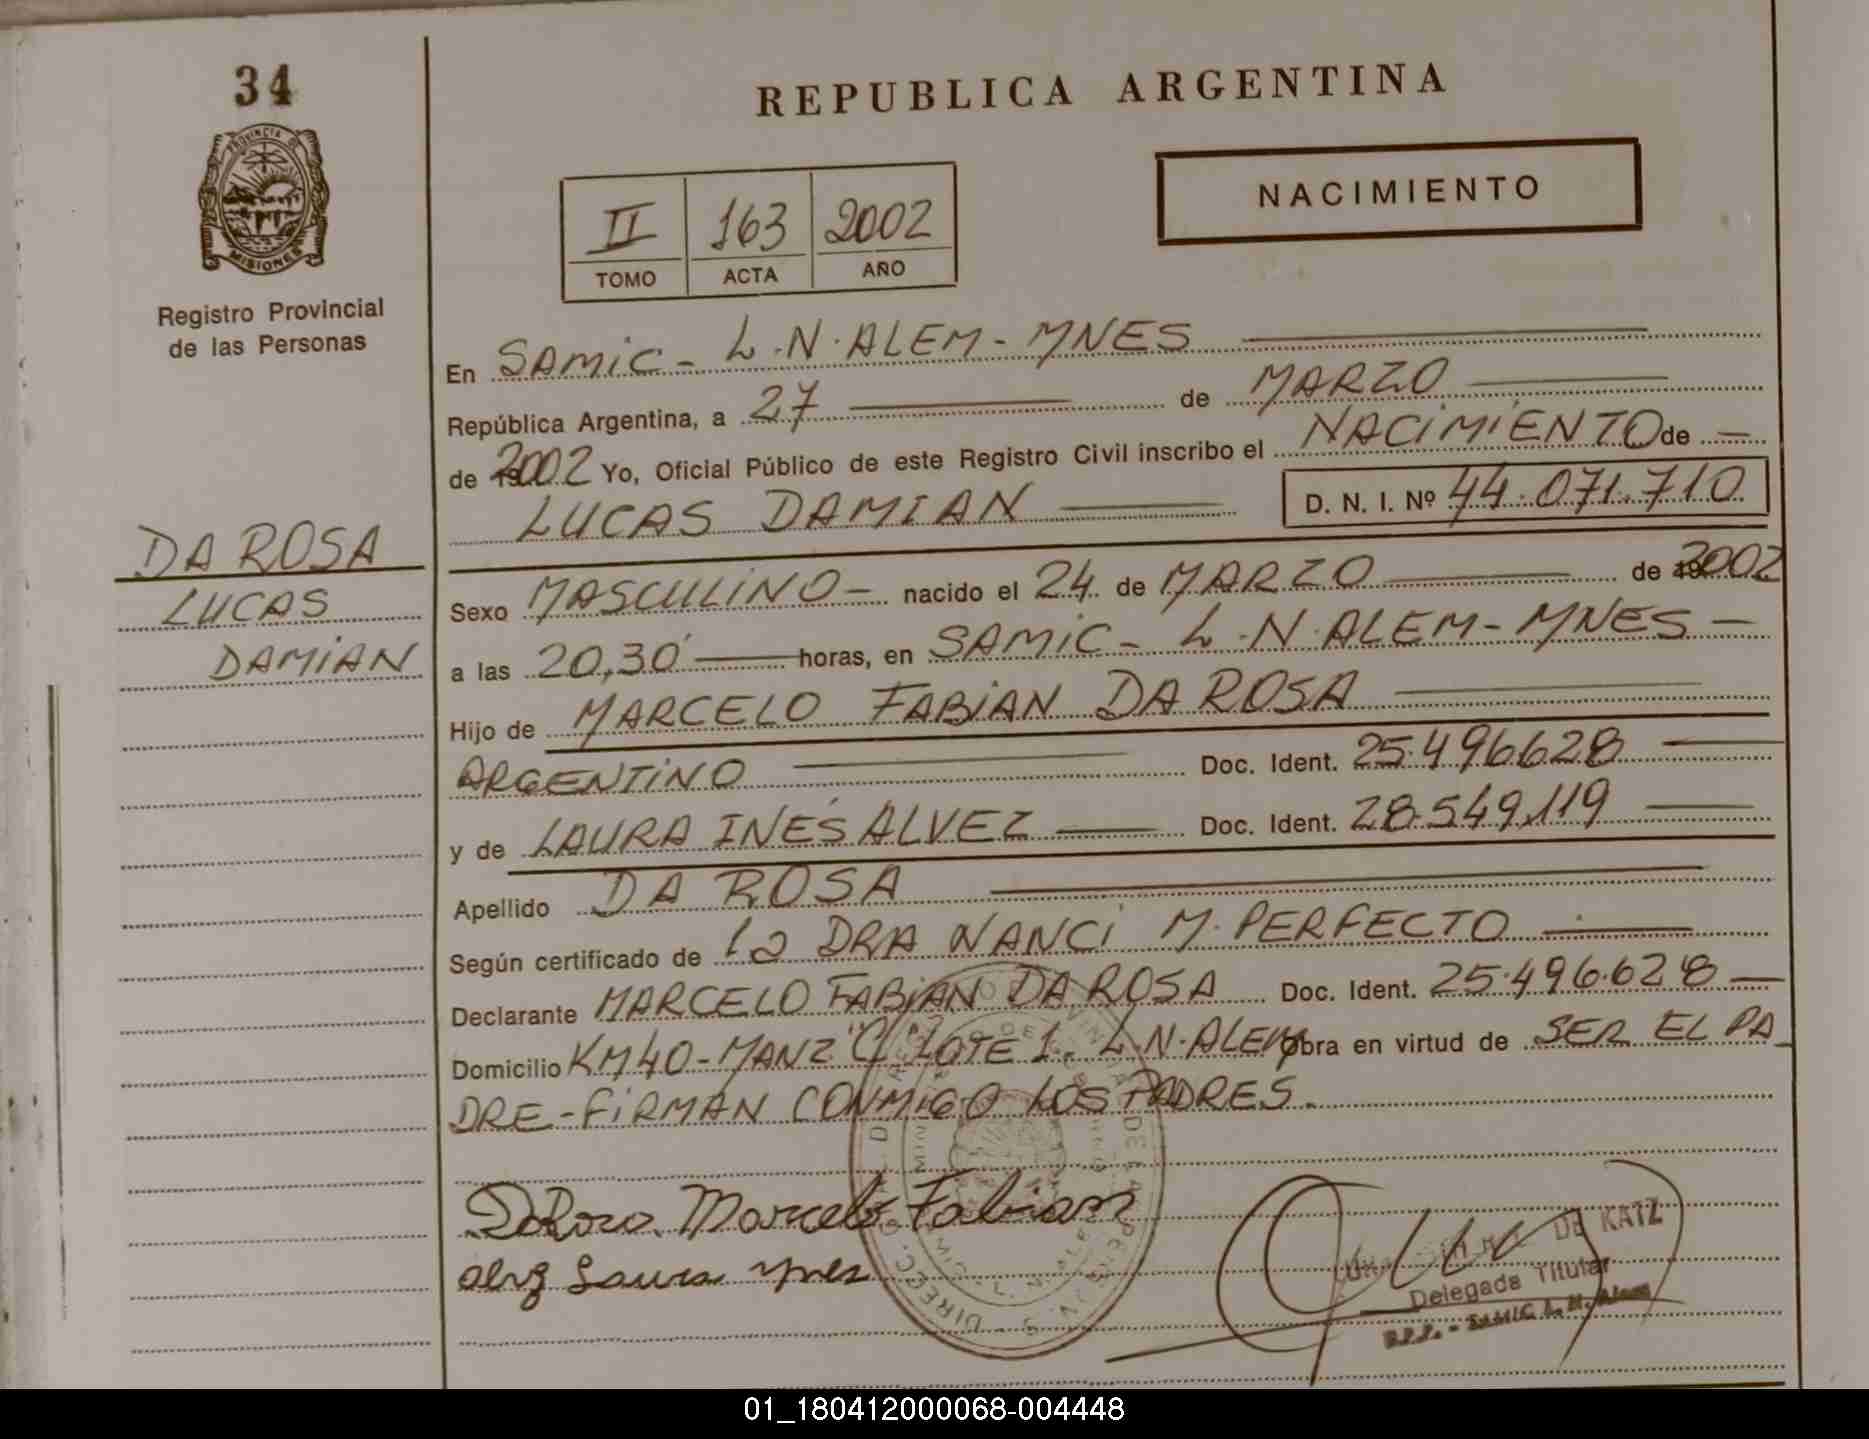 34
PROVINCIA DE
MISIONES
Registro Provincial
de las Personas
DA ROSA
LUCAS
DAMIAN
REPUBLICA ARGENTINA
NACIMIENTO
II 163 2002
TOMO ACTA AÑO
En SAMIC - L.N.ALEM - MNES
República Argentina, a 27 de MARZO
de 2002 Yo, Oficial Público de este Registro Civil inscribo el NACIMIENTO de -
LUCAS DAMIAN D. N. I. Nº 44.071.710
Sexo MASCULINO - nacido el 24 de MARZO de 2002
a las 20,30 horas, en SAMIC - L.N.ALEM - MNES -
Hijo de MARCELO FABIAN DA ROSA
ARGENTINO Doc. Ident. 25.496.628
y de LAURA INÉS ALVEZ Doc. Ident. 28.549.119
Apellido DA ROSA
Según certificado de la DRA NANCI M. PERFECTO
Declarante MARCELO FABIAN DA ROSA Doc. Ident. 25.496.628 -
Domicilio KM40 - MANZ "C" LOTE 1. L.N.ALEM Obra en virtud de SER EL PA
DRE - FIRMAN CONMIGO LOS PADRES.
DaRosa Marcelo Fabian
Laura Ynes
DE KATZ
Delegada Titular
R.P.P. - SAMIC L. N. Alem
01_180412000068-004448